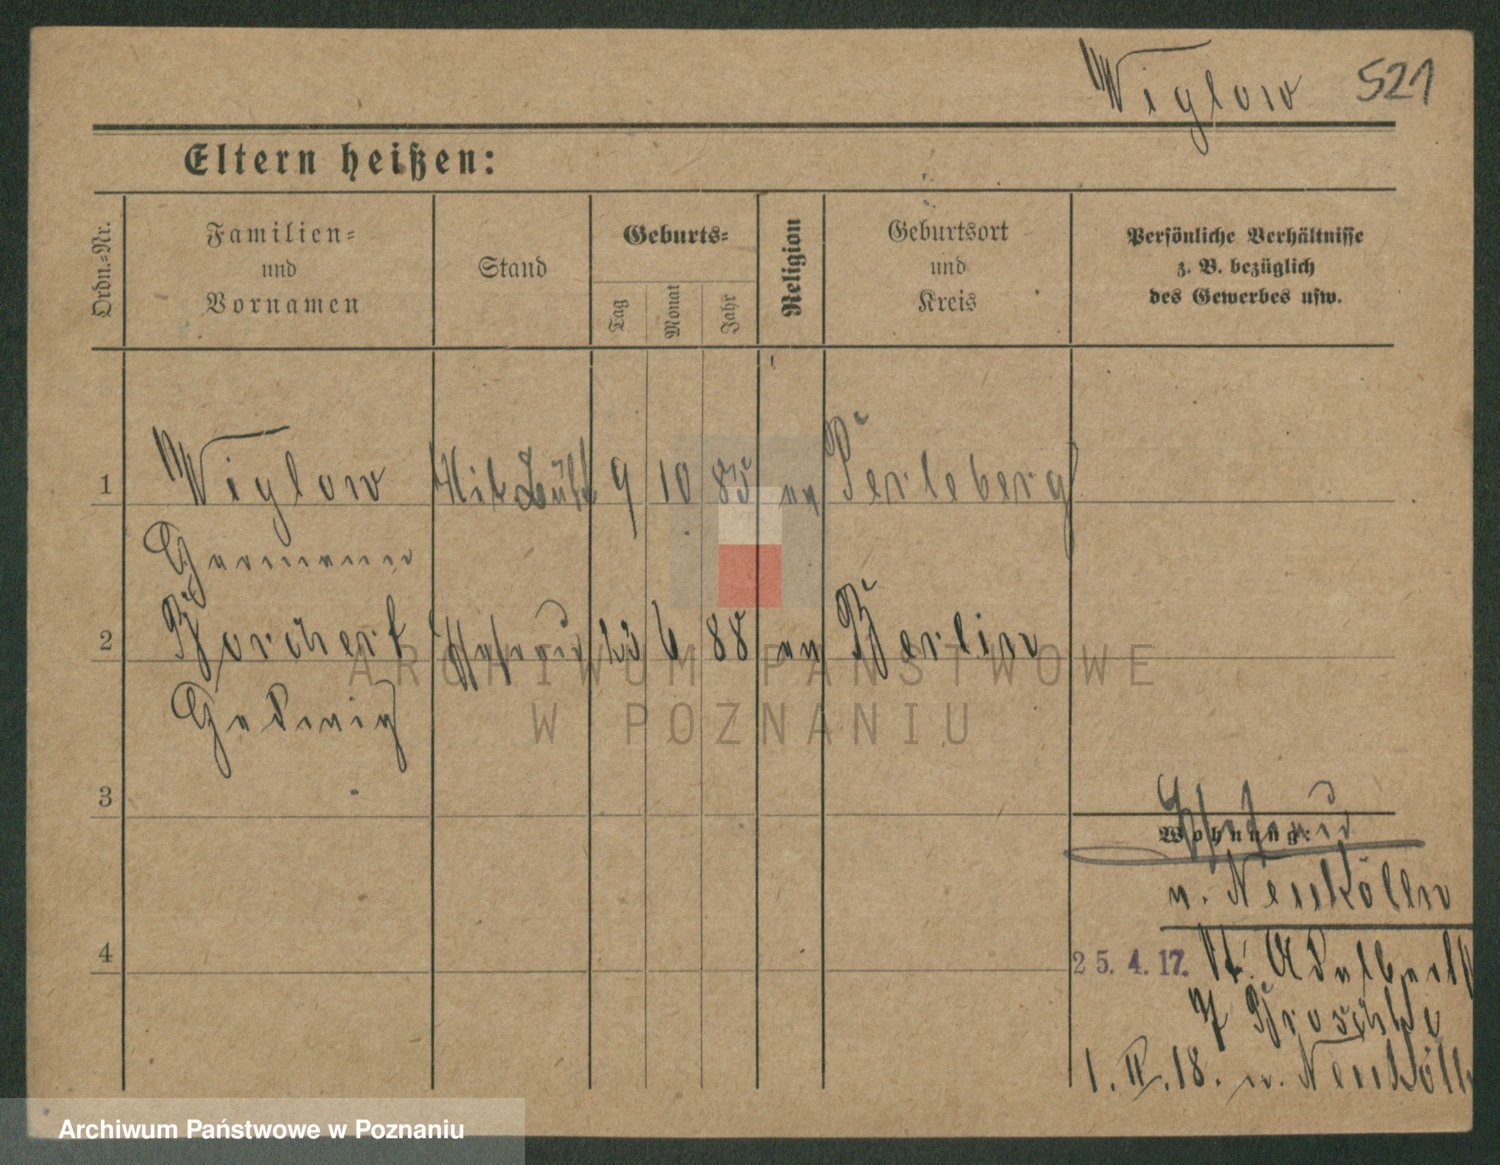 Wiglow 521
Eltern heißen:
Ordn.-Nr.
Familien-
und
Vornamen
Stand
Geburts-
Tag
Monat
Jahr
Religion
Geburtsort
und
Kreis
Persönliche Verhältnisse
z. B. bezüglich
des Gewerbes usw.
1 Wiglow 9 10 85 ev Perleberg
Hermann
2 Borchert Ehefrau 6 88 ev Berlin
Hedwig
3
Ehefrau
Wohnung:
n. Neukölln
4
25. 4. 17. St. Adalbertst
7 Broschke
1. II. 18. n. Neukölln
ARCHIWUM PAŃSTWOWE
W POZNANIU
Archiwum Państwowe w Poznaniu